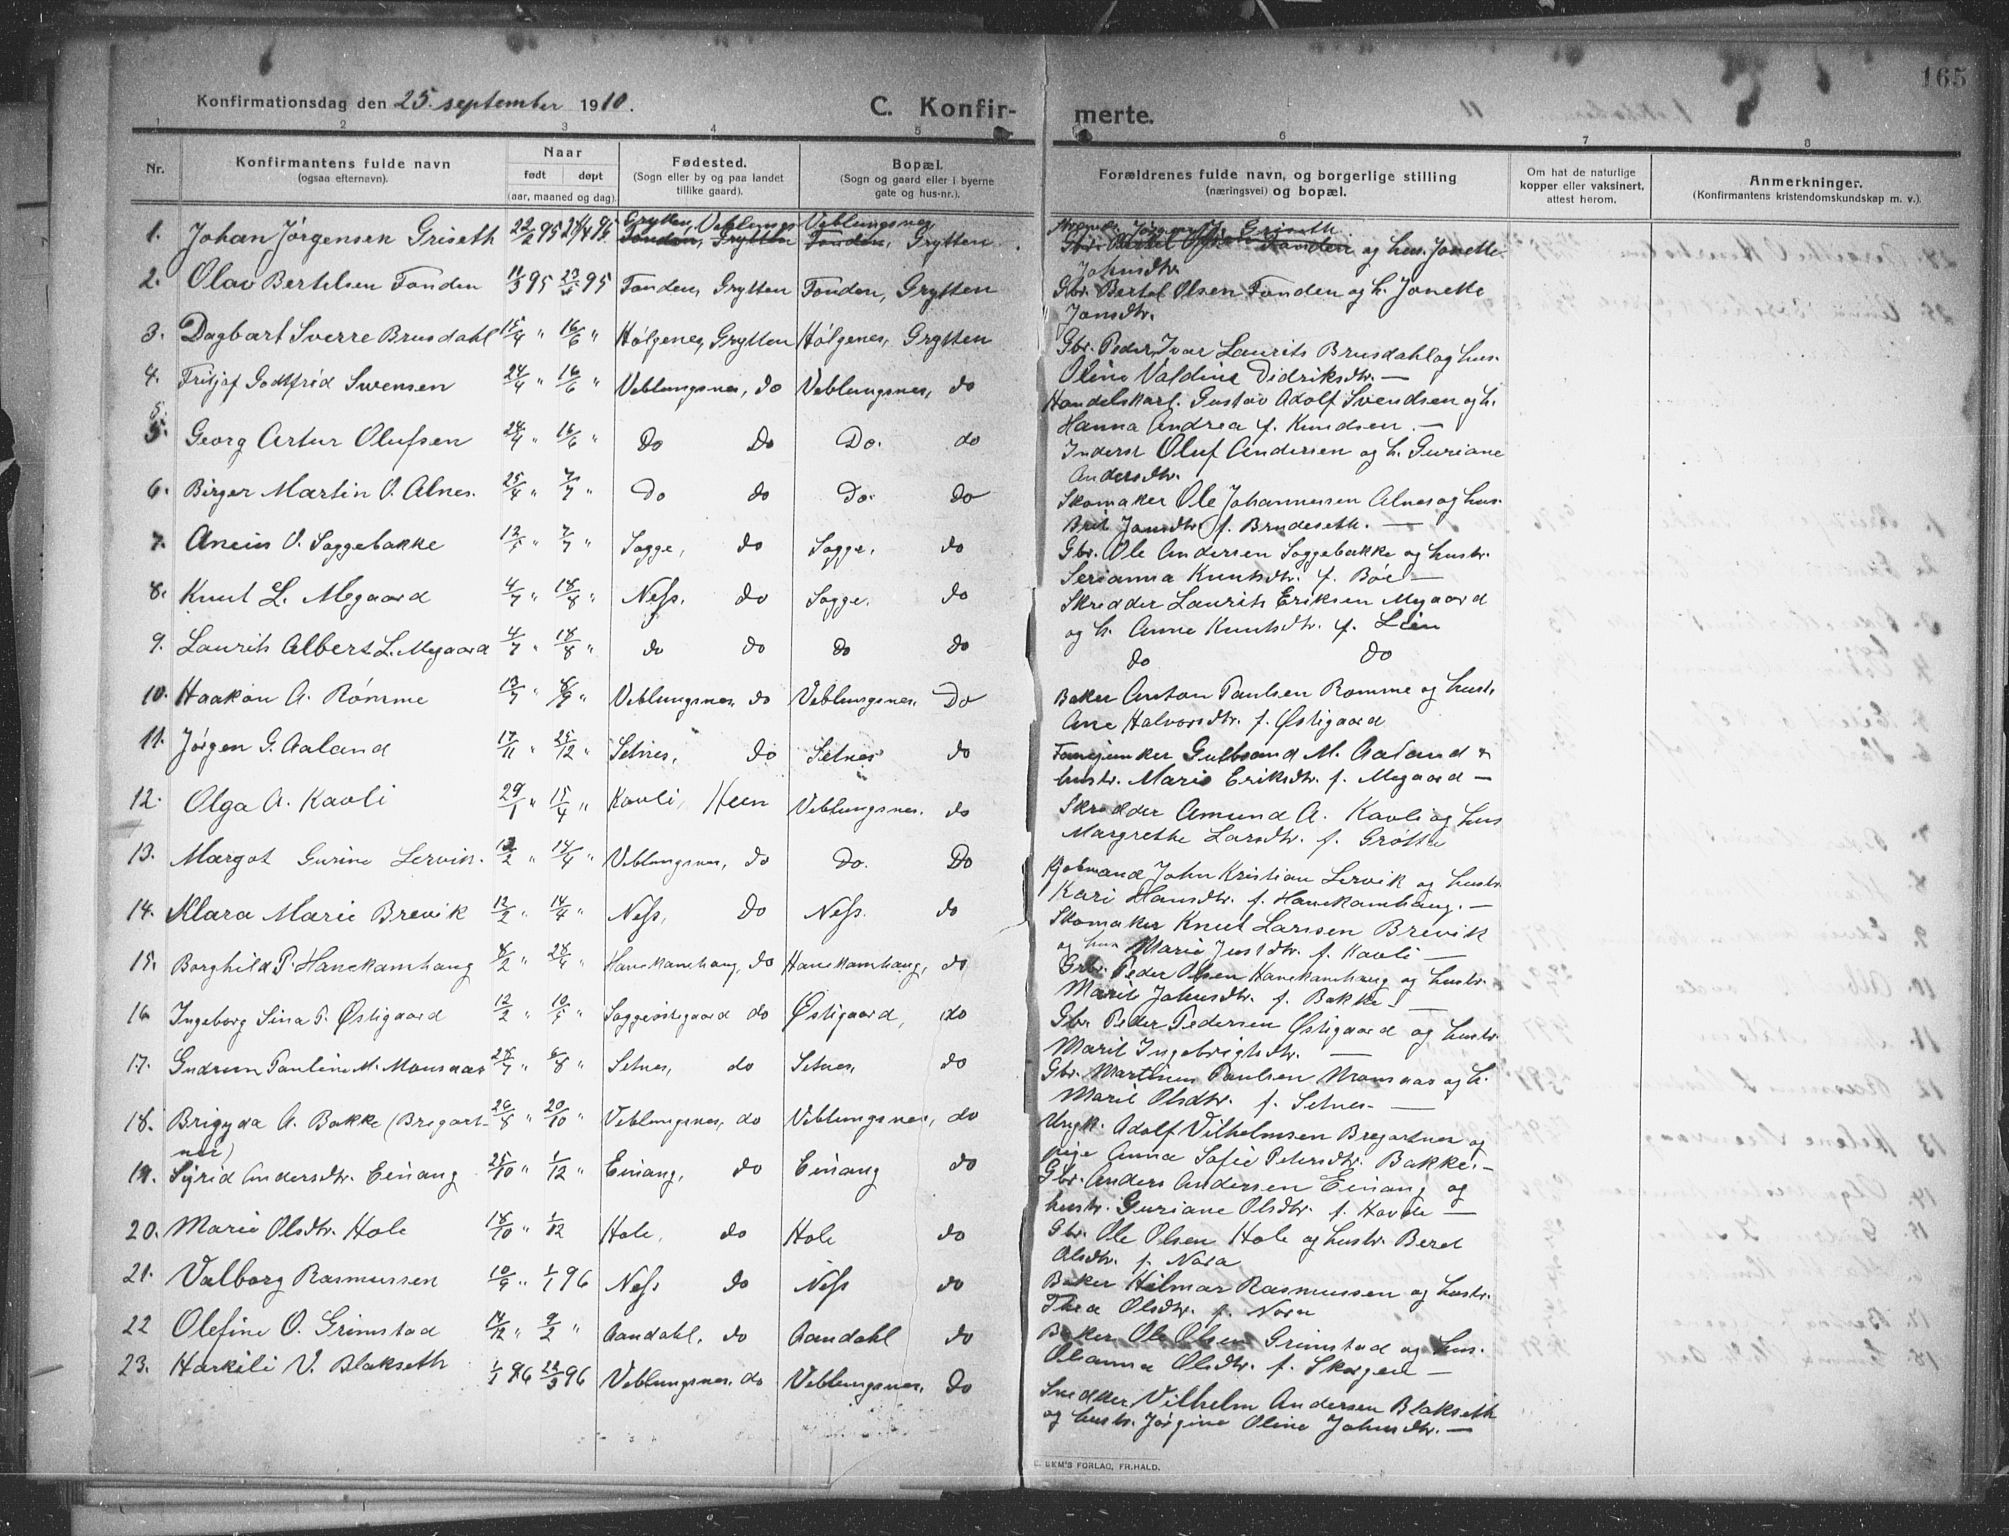 165
Konfirmationsdag den 25. september 1910. C. Konfir- merte.
1 2 3 4 5 6 7 8
Nr. Konfirmantens fulde navn (ogsaa efternavn). Naar født døpt (aar, maaned og dag). Fødested. (Sogn eller by og paa landet tillike gaard). Bopæl. (Sogn og gaard eller i byerne gate og hus-nr.). Forældrenes fulde navn, og borgerlige stilling (næringsvei) og bopæl. Om hat de naturlige kopper eller vaksinert, attest herom. Anmerkninger. (Konfirmantens kristendomskundskap m. v.).
1. Johan Jørgensen Griseth 22/2 95 Grytten, Veblungsnes Veblungsnes, Grytten Jørgen Griseth og hus. Jonette
Johnsdtr.
2. Olav Bertelsen Fonden 11/3 95 23/5 95 Fonden, Grytten Fonden, Grytten Gbr. Bertel Olsen Fonden og h. Jonette
Jonsdtr.
3. Dagbart Sverre Brusdahl 15/4 " 16/6 " Holgenes, Grytten Holgenes, Grytten Gbr. Peder Ivar Laurits Brusdahl og hus.
Oline Valdine Didriksdtr. —
4. Fritjof Godtfrid Swensen 24/4 " 16/6 " Veblungsnes, do Veblungsnes, do Handelskarl. Gustav Adolf Svendsen og h.
Hanna Andrea f. Knudsen. —
5. Georg Artur Olufsen 24/4 " 16/6 " Do Do Do. do Inderst Oluf Andersen og h. Guriane
Andersdtr.
6. Birger Martin O. Alnes. 25/4 " 7/7 " Do do Do. do Skomaker Ole Johannessen Alnes og hus.
Brit Jonsdtr. f. Brudeseth. —
7. Anein O. Soggebakke 12/5 " 7/7 " Sogge, do Sogge, do Gbr. Ole Andersen Soggebakke og hustr.
Serianna Knutsdtr. f. Bøe —
8. Knut L. Megaard 4/7 " 18/8 " Ness. do Sogge. do Skredder Laurits Eriksen Megaard
og h. Anne Knutsdtr. f. Lien
9. Laurits Albert L. Megaard 4/7 " 18/8 " do do do do do do
10. Haakon A. Rømme 13/7 " 8/9 " Veblungsnes, do Veblungsnes, Do Baker Anton Paulsen Romme og hustr.
Ane Halvorsdtr. f. Østigaard
11. Jørgen G. Aaland 17/11 " 25/12 " Setnes, Do Setnes do Fanejunker Gulbrand M. Aaland &
hustr. Marie Eriksdtr. f. Megaard —
12. Olga A. Kavli 29/1 " 15/4 " Kavli, Heen Veblungsnes. do Skredder Amund A. Kavli og hus
Margrethe Larsdtr. f. Grøtta
13. Margot Gurine Lervik. 12/2 " 14/4 " Veblungsnes, do Do. Do John Kristian Lervik og hustr.
Kari Hansdtr. f. Hanekamhaug. —
14. Klara Marie Brevik 12/2 " 14/4 " Ness, Do Ness. do Skomaker Knut Larsen Brevik
og hus Marie Justdtr. f. Kavli —
15. Borghild P. Hanekamhaug 8/2 " 28/4 " Hanekamhaug, do Hanekamhaug, do Gbr. Peder Olsen Hanekamhaug og hustr.
Marit Johnsdtr. f. Bakke —
16 Ingeborg Sina P. Østigaard 12/2 " 10/5 " Soggeøstegaard do Østigaard, do Gbr. Peder Pedersen Østigaard og hustr.
Marit Ingebrigtsdtr. —
17. Gudrun Pauline M. Monsaas 28/7 " 6/8 " Setnes, do Setnes, do Gbr. Martinus Paulsen Monsaas og h.
Marit Olsdtr. f. Setnes —
18. Brigyda A. Bakke (Bregart- 26/8 " 20/10 " Veblungsnes, do Veblungsnes, do Ungk. Adolf Vilhelmsen Bregartner og
ner) pige Anna Sofie Petersdtr. Bakke. —
19. Sigrid Andersdtr. Einang 25/10 " 1/12 " Einang, do Einang do Gbr. Anders Andersen Einang og
hustr. Guriane Olsdtr. f. Havde —
20. Marie Olsdtr. Hole 18/10 " 1/12 Hole, do Hole do Gbr. Ole Olsen Hole og hustr. Beret
Olsdtr. f. Nora
21. Valborg Rasmussen 10/9 " 1/1 96 Ness do Ness do Baker Hilmar Rasmussen og hustr.
Thea Olsdtr. f. Nora
22 Olefine O. Grimstad 14/12 " 9/2 " Aandahl, do Aandahl do Baker Ole Olsen Grimstad og hus.
Olianna Olsdtr. f. Skogen —
23. Harkili V. Blakseth 1/1 96 22/3 96 Veblungsnes. do Veblungsnes. Do Snedker Vilhelm Andersen Blakseth
og hustr. Jørgine Oline Johnsdtr. —
FORLAG, FR.HALD.